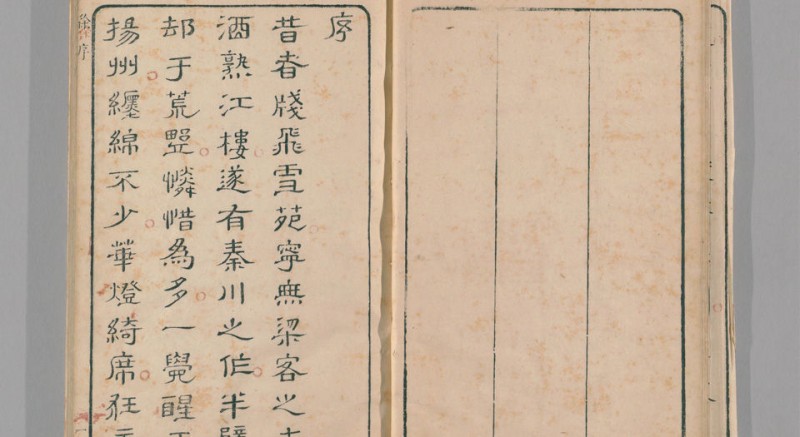 序
昔者牋飛雪苑寧無梁客之
酒熟江樓遂有秦川之作半
却于荒墅憐惜為多一覺醒
揚州纏綿不少華燈綺席狂
序